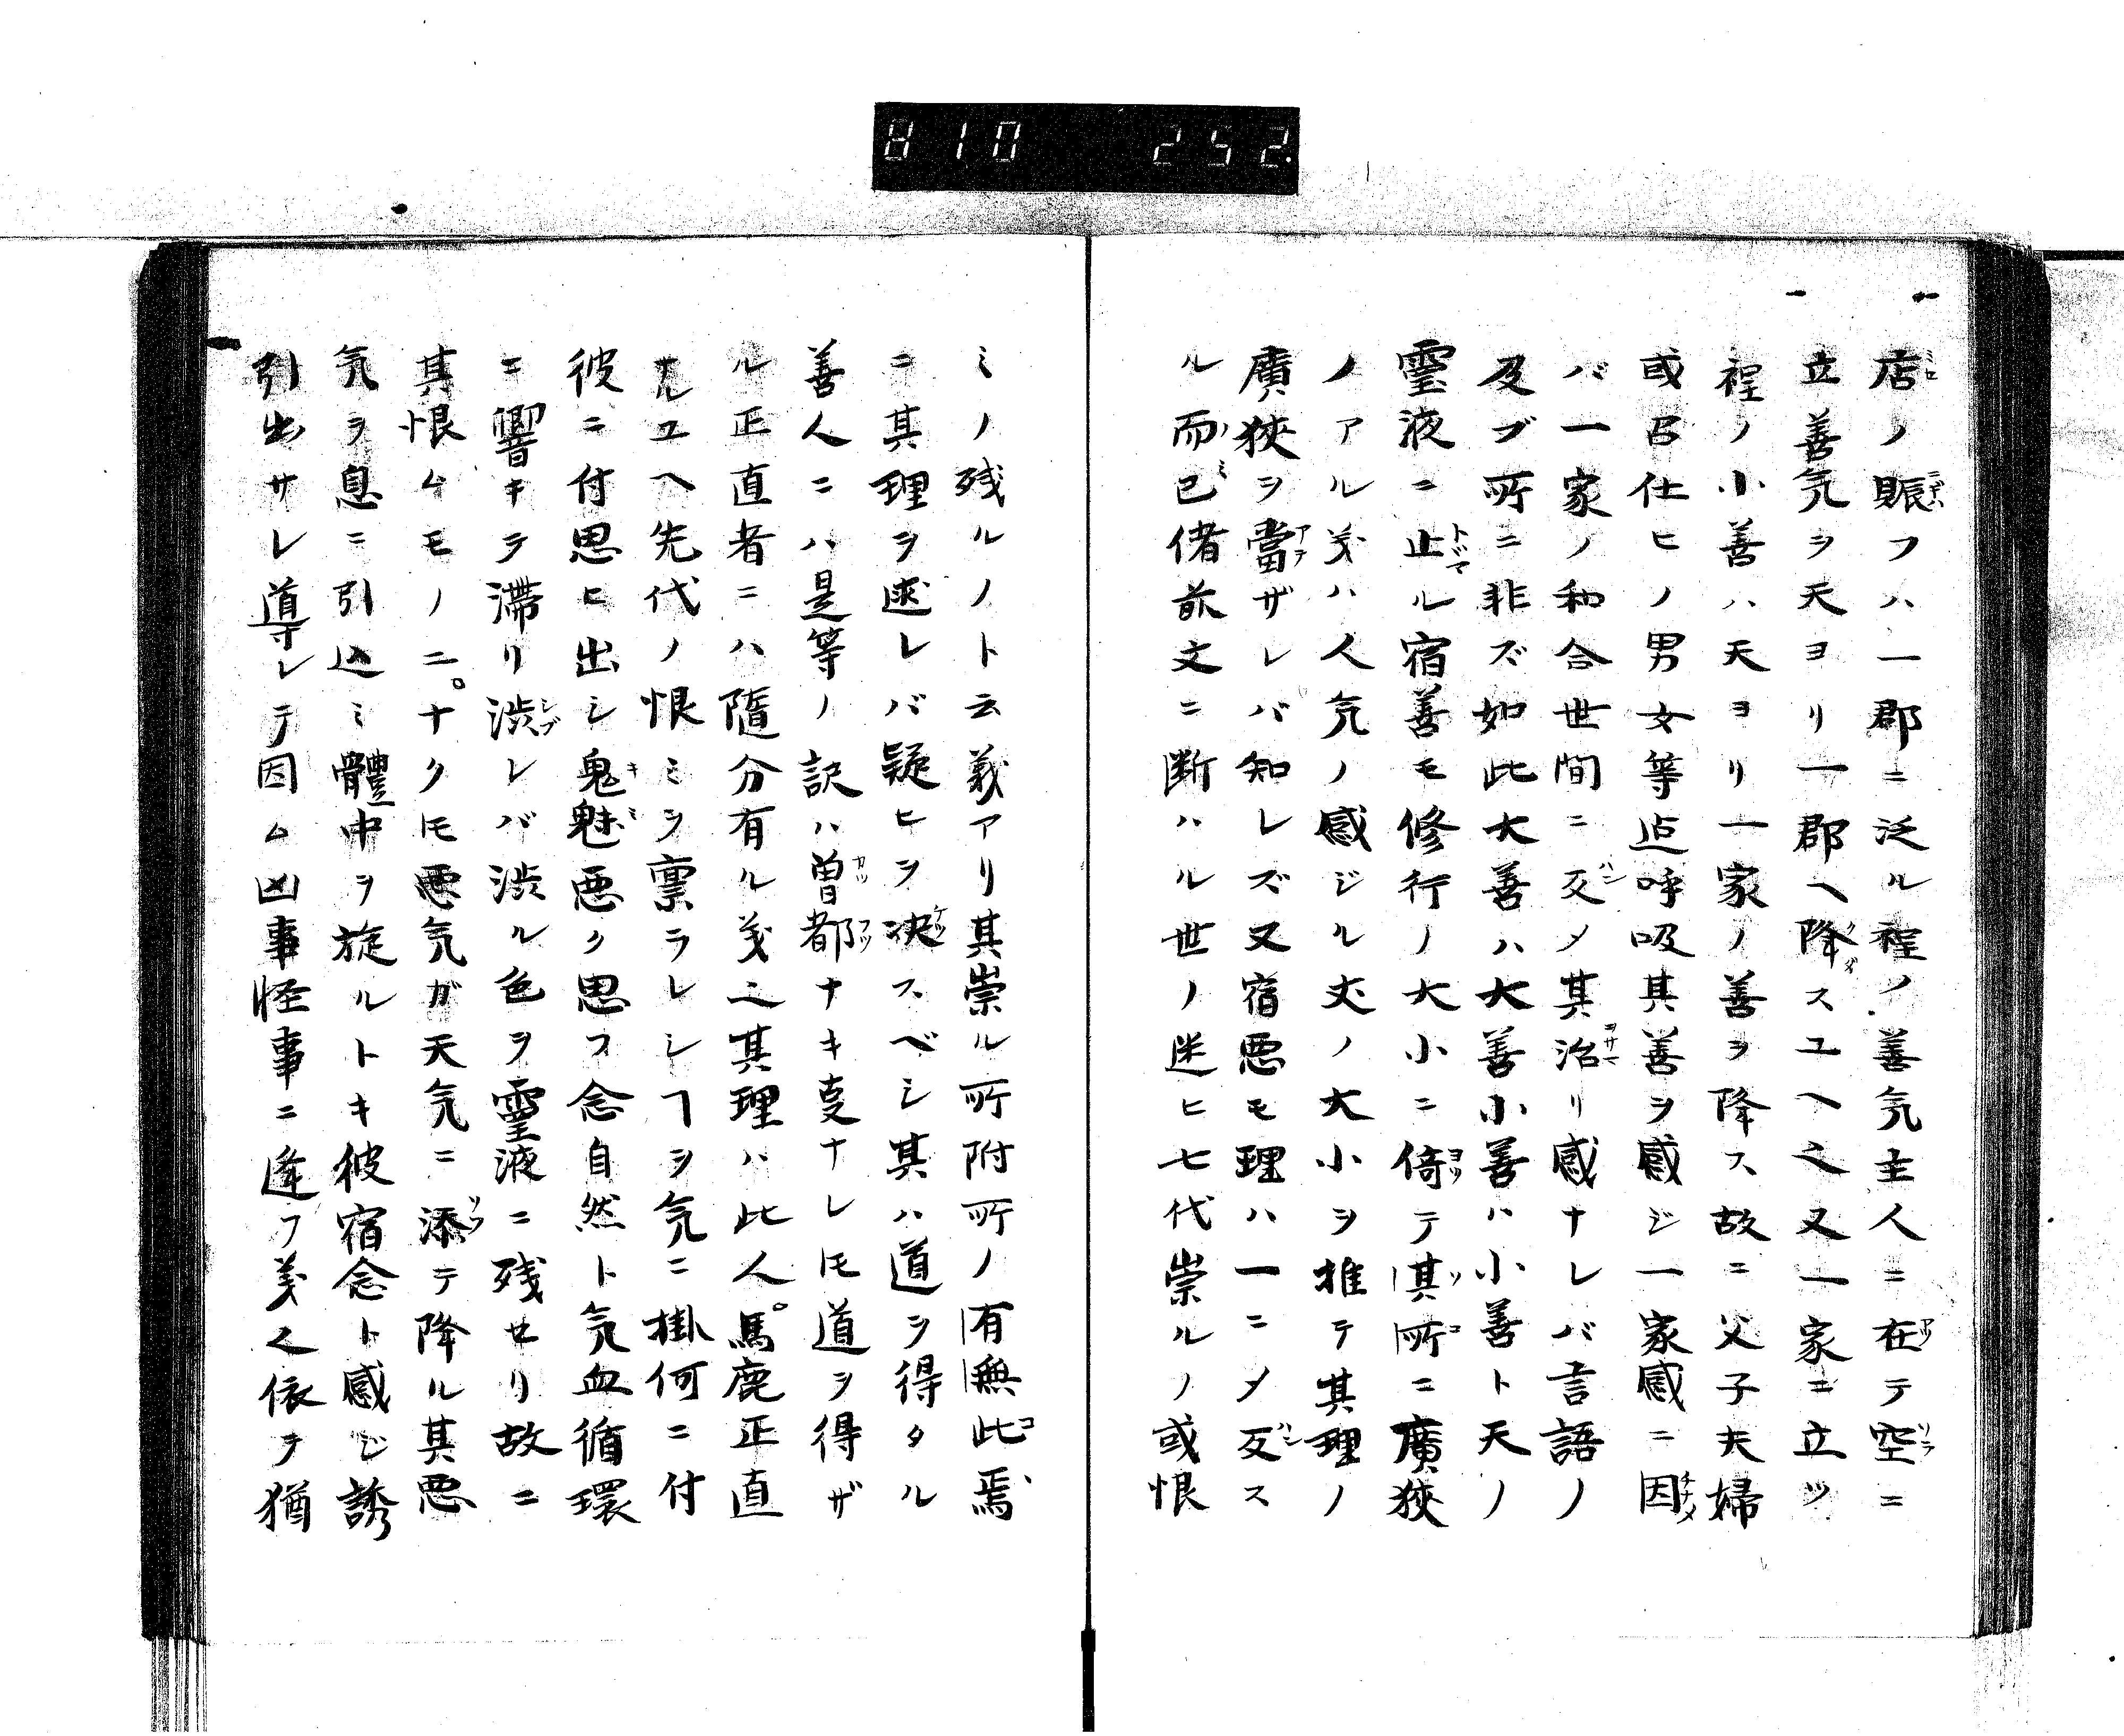 810 252.
店ノ賑フハ一郡ニ泛ル程ノ善気主人ニ在テ空ニ
立善気ヲ天ヨリ一郡ヘ降スユヘ之又一家ニ立ツ
程ノ小善ハ天ヨリ一家ノ善ヲ降ス故ニ父子夫婦
或召仕ヒノ男女等迠呼吸其善ヲ感ジ一家感ニ因
バ一家ノ和合世間ニ反メ其治リ感ナレバ言語ノ
及ブ所ニ非ズ如此大善ハ大善小善ハ小善ト天ノ
霊液ニ止ル宿善モ修行ノ大小ニ倚テ其所ニ廣狹
ノアル義ハ人気ノ感ジル丈ノ大小ヲ推テ其理ノ
廣狹ヲ當ザレバ知レズ又宿悪モ理ハ一ニメ反ス
ル而已偖前文ニ断ハル世ノ迷ヒ七代祟ルノ或恨
ミノ残ルノト云義アリ其祟ル所附所ノ有無此焉
ニ其理ヲ逑レバ疑ヒヲ决スベシ其ハ道ヲ得タル
善人ニハ是等ノ訳ハ曽都ナキ叓ナレ𪜈道ヲ得ザ
ル正直者ニハ隨分有ル義之其理ハ此人馬鹿正直
ナルユヘ先代ノ恨ミヲ禀ラレシヿヲ気ニ掛何ニ付
彼ニ付思ヒ出シ鬼魅悪ク思フ念自然ト気血循環
ニ響キテ滞リ渋レバ渋ル色ヲ霊液ニ残セリ故ニ
其恨ムモノニナク𪜈悪気ガ天気ニ添テ降ル其悪
気ヲ息ニ引込ミ體中ヲ旋ルトキ彼宿念ト感ジ誘
引出サレ導レテ因ム凶事怪事ニ逢フ義之依テ猶